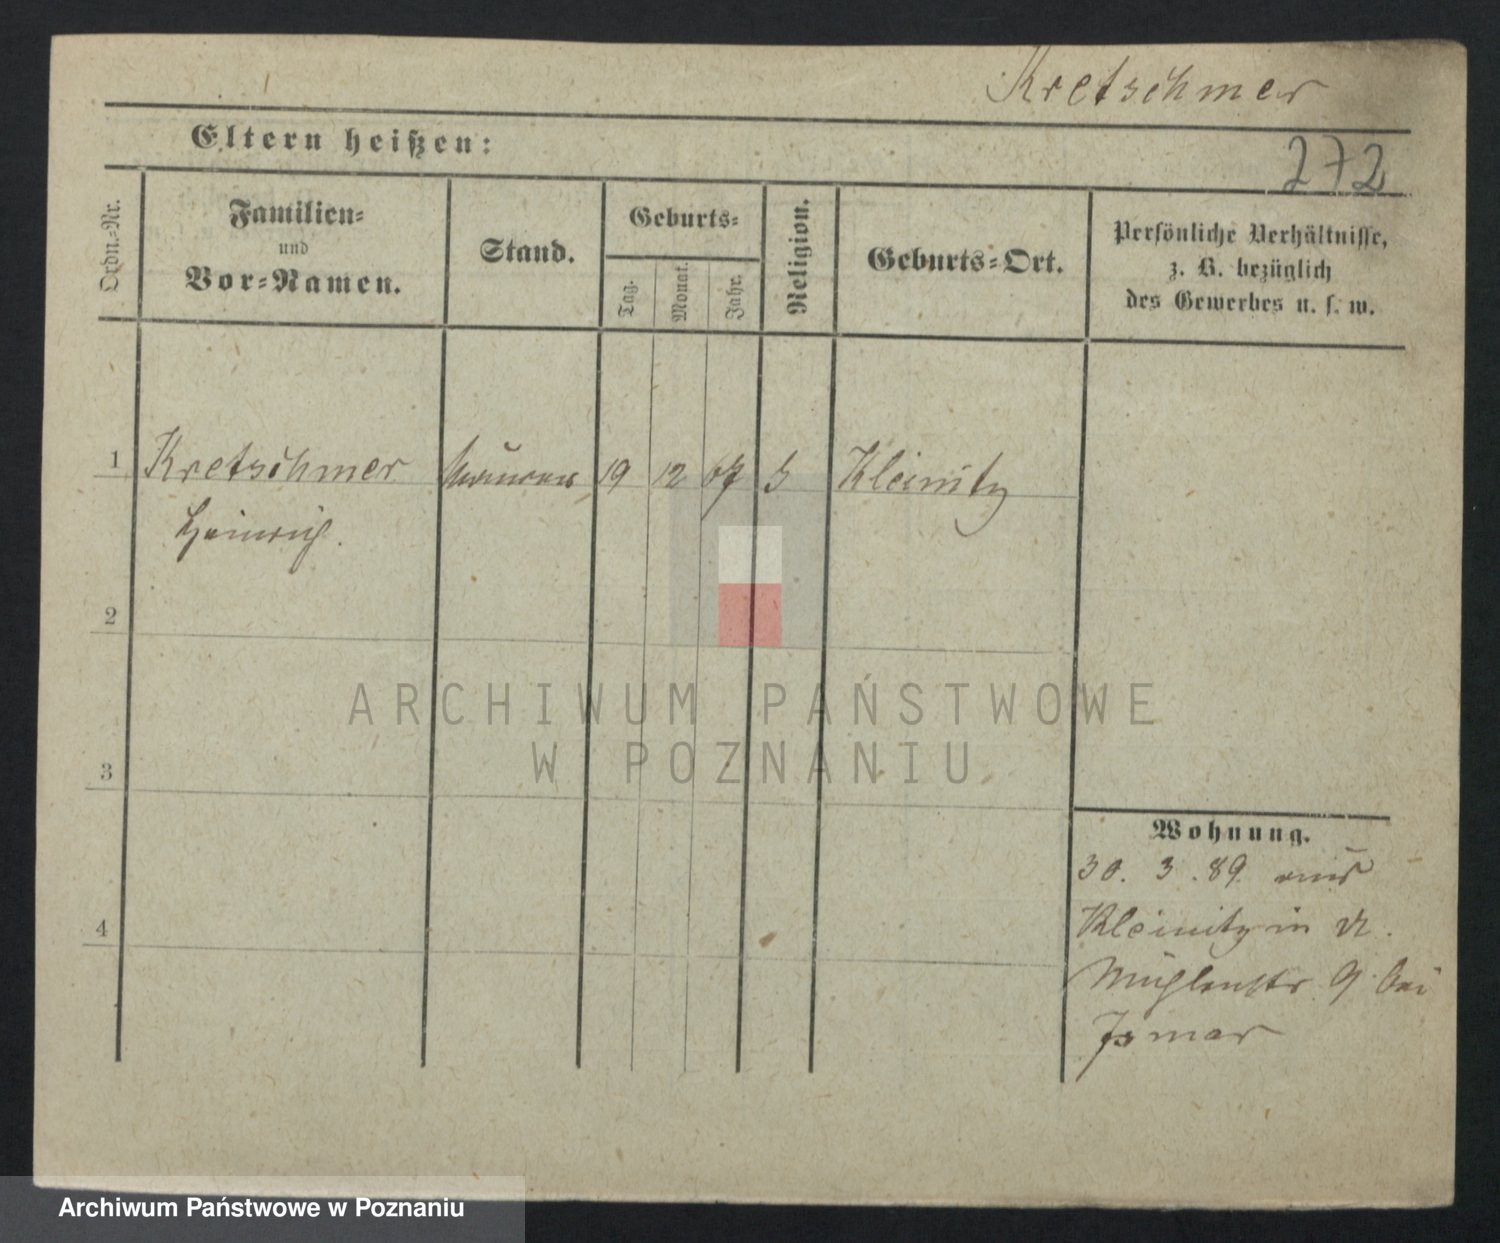 Kretschmer
Eltern heißen:
272
Ordn.-Nr.
Familien-
und
Vor-Namen.
Stand.
Geburts-
Tag.
Monat.
Jahr.
Religion.
Geburts-Ort.
Persönliche Verhältnisse,
z. B. bezüglich
des Gewerbes u. s. w.
1 Kretschmer 19 12 67 Kleinitz
Heinrich.
2
3
4
ARCHIWUM PAŃSTWOWE
W POZNANIU
Wohnung.
30. 3. 89. aus
Kleinitz in
Mühlenstr. 9 bei
Archiwum Państwowe w Poznaniu